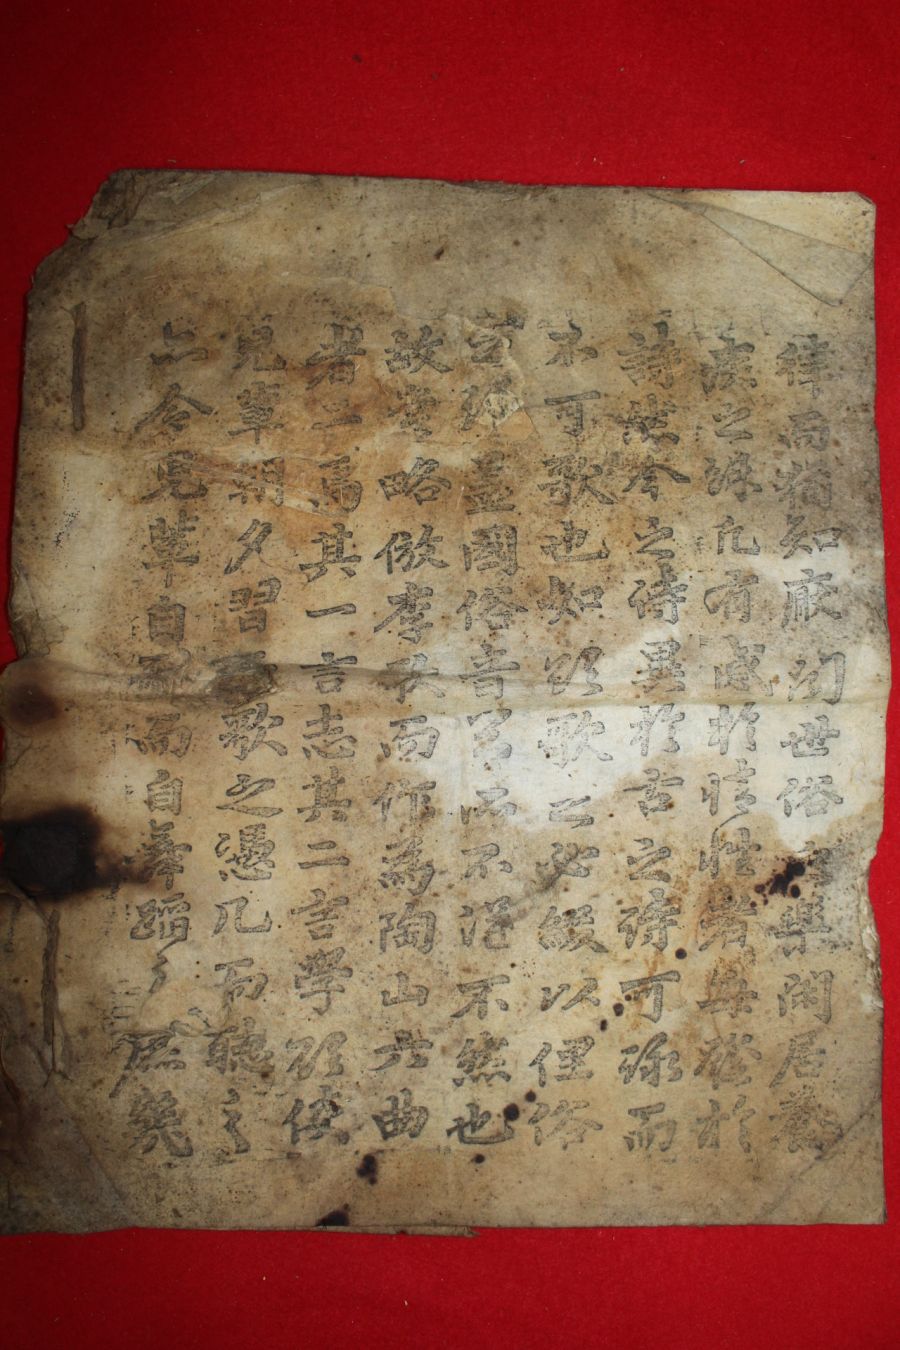 律而猶知厭聞世俗之樂閑居養
疾之餘凡有感於情性者每發於
詩然今之詩異於古之詩可詠而
不可歌也如欲歌之必綴以俚俗
之語蓋國俗音節所不得不然也
故嘗略倣李歌而作為陶山六曲
者二焉其一言志其二言學欲使
兒輩朝夕習而歌之憑几而聽之
亦令兒輩自歌而自舞蹈之庶幾